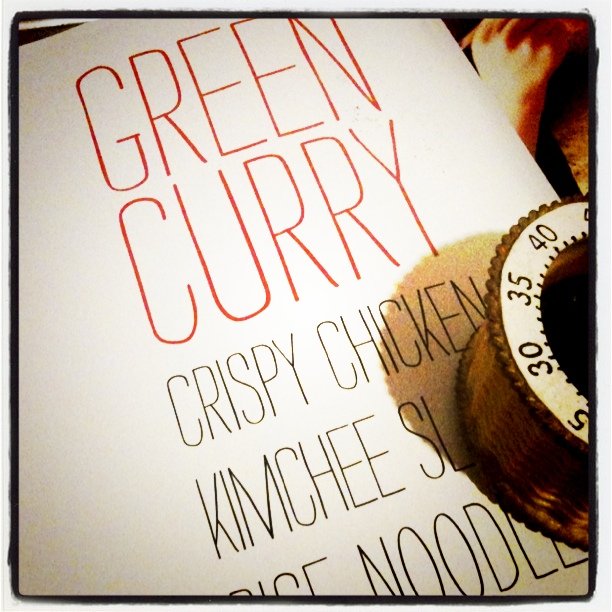 GREEN
CURRY
CRISPY CHICKEN
KIMCHEE SL
RICE NOODLE
40
35
30